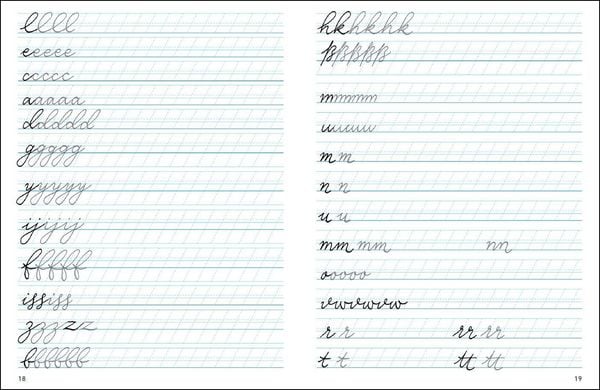 llll
eeeee
ccccc
aaaaa
ddddd
ggggg
yyyyy
ijijij
fffff
ississ
zzzzz
bbbbbb
18
hkhkhk
m m
n n
u u
mm mm nn
ooooo
vwvwvw
r r rr rr
t t tt tt
19